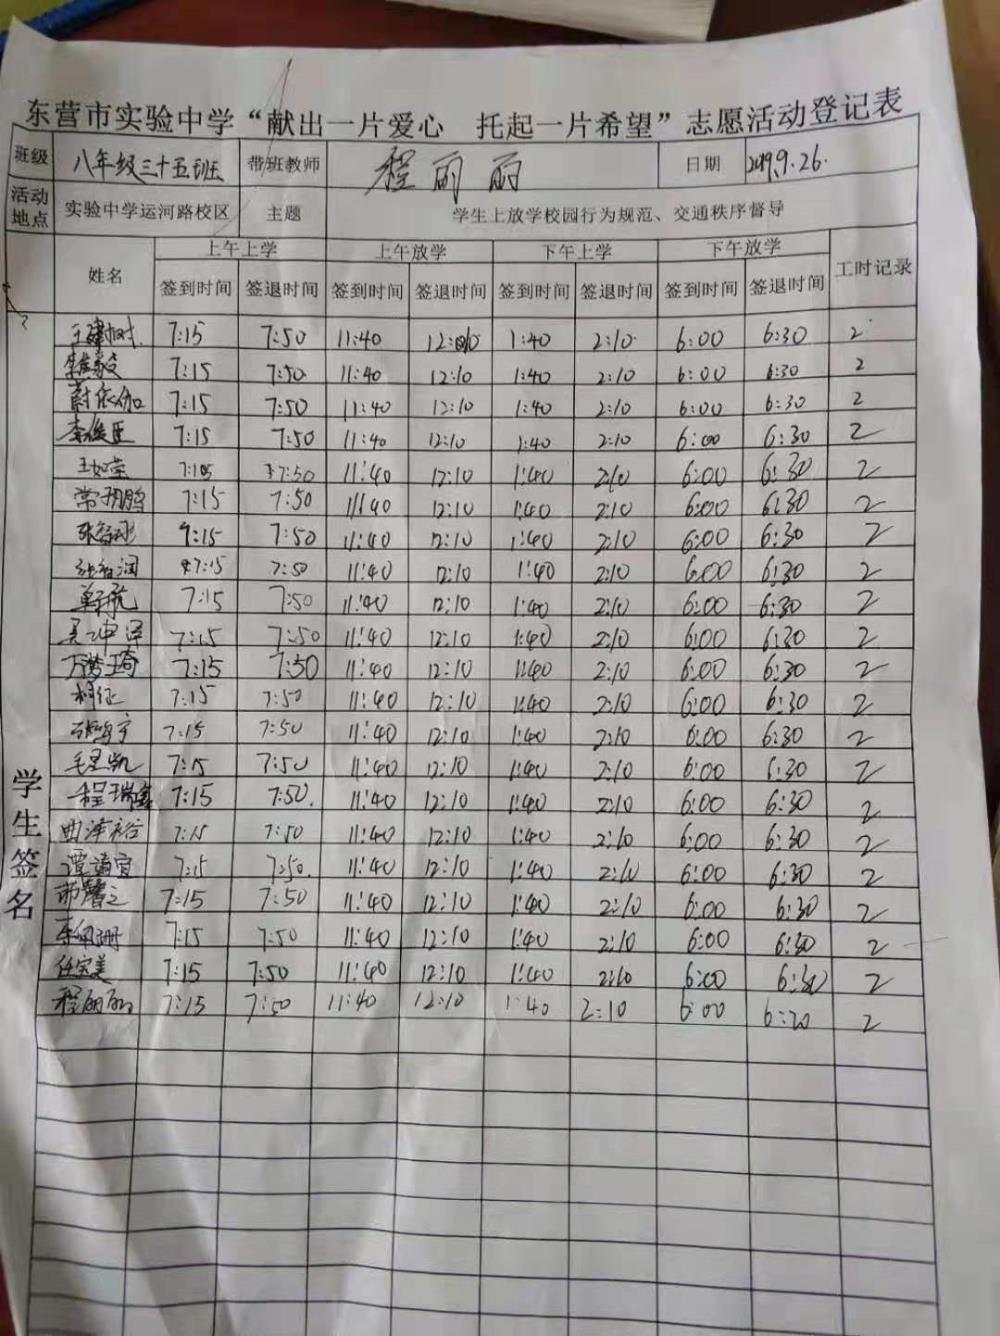 东营市实验中学“献出一片爱心 托起一片希望”志愿活动登记表
班级 八年级三十五班 带班教师 程丽丽 日期 2019.9.26.
活动地点 实验中学运河路校区 主题 学生上放学校园行为规范、交通秩序督导
姓名 上午上学 上午放学 下午上学 下午放学 工时记录
签到时间 签退时间 签到时间 签退时间 签到时间 签退时间 签到时间 签退时间
学生签名
7:15 7:50 11:40 12:10 1:40 2:10 6:00 6:30 2
7:15 7:50 11:40 12:10 1:40 2:10 6:00 6:30 2
蔚依伽 7:15 7:50 11:40 12:10 1:40 2:10 6:00 6:30 2
李俊臣 7:15 7:50 11:40 12:10 1:40 2:10 6:00 6:30 2
7:50 11:40 12:10 1:40 2:10 6:00 6:30 2
7:15 7:50 11:40 12:10 1:40 2:10 6:00 6:30 2
7:50 11:40 12:10 1:40 2:10 6:00 6:30 2
7:15 7:50 11:40 12:10 1:40 2:10 6:00 6:30 2
7:15 7:50 11:40 12:10 1:40 2:10 6:00 6:30 2
吴坤泽 7:15 7:50 11:40 12:10 1:40 2:10 6:00 6:30 2
万梦琦 7:15 7:50 11:40 12:10 1:40 2:10 6:00 6:30 2
7:15 7:50 11:40 12:10 1:40 2:10 6:00 6:30 2
7:15 7:50 11:40 12:10 1:40 2:10 6:00 6:30 2
毛星凯 7:15 7:50 11:40 12:10 1:40 2:10 6:00 6:30 2
程瑞鑫 7:15 7:50. 11:40 12:10 1:40 2:10 6:00 6:30 2
曲泽裕 7:15 7:50 11:40 12:10 1:40 2:10 6:00 6:30 2
谭靖宜 7:15 7:50. 11:40 12:10 1:40 2:10 6:00 6:30 2
7:15 7:50 11:40 12:10 1:40 2:10 6:00 6:30 2
7:15 7:50 11:40 12:10 1:40 2:10 6:00 6:30 2
任宝美 7:15 7:50 11:40 12:10 1:40 2:10 6:00 6:30 2
程丽丽 7:15 7:50 11:40 12:10 1:40 2:10 6:00 2